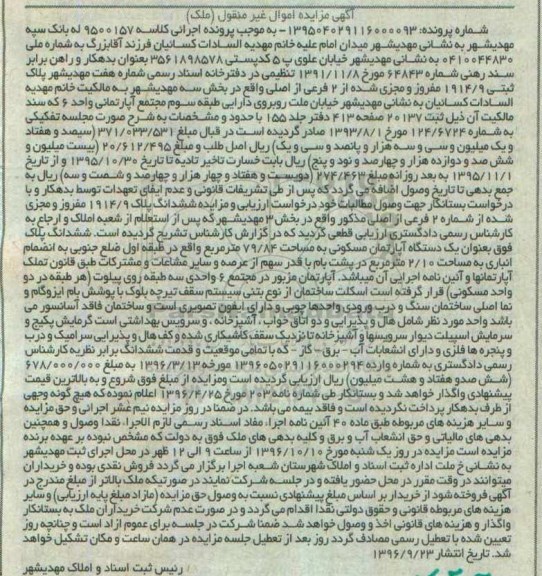 آگهی مزایده اموال غیر منقول (ملک)
شماره پرونده: ۱۳۹۵۰۴۰۲۹۱۱۶۰۰۰۰۹۳- به موجب پرونده اجرائی کلاسه ۹۵۰۰۱۵۷ له بانک سپه
مهدیشهر به نشانی مهدیشهر میدان امام علیه خانم مهدیه السادات کسائیان فرزند آقابزرگ به شماره ملی
۰۴۱۰۰۴۴۸۳۰ به نشانی مهدیشهر خیابان علوی پ ۵ کدپستی ۳۵۶۱۸۹۸۵۷۸ بعنوان بدهکار و راهن برابر
سند رهنی شماره ۶۴۸۴۳ مورخ ۱۳۹۱/۱۱/۸ تنظیمی در دفترخانه اسناد رسمی شماره هفت مهدیشهر پلاک
ثبتی ۱۹۱۴/۹ مفروز و مجزی شده از ۲ فرعی از اصلی واقع در بخش سه مهدیشهر به مالکیت خانم مهدیه
السادات کسائیان به نشانی مهدیشهر خیابان ملت روبروی دارایی طبقه سوم مجتمع آپارتمانی واحد ۶ که سند
مالکیت آن ذیل ثبت ۲۰۱۳۷ صفحه ۴۱۳ دفتر جلد ۱۵۵ با حدود و مشخصات به شرح صورت مجلسه تفکیکی
به شماره ۱۲۴/۶۷۲۴ مورخ ۱۳۹۳/۸/۱ صادر گردیده است در قبال مبلغ ۳۷۱/۰۳۳/۵۳۱ (سیصد و هفتاد
و یک میلیون و سی و سه هزار و پانصد و سی و یک) ریال اصل طلب و مبلغ ۲۰/۶۱۲/۴۹۵ (بیست میلیون و
شش صد و دوازده هزار و چهارصد و نود و پنج) ریال بابت خسارت تاخیر تادیه تا تاریخ ۱۳۹۵/۱۰/۳۰ و از تاریخ
۱۳۹۵/۱۱/۱ به بعد روزانه مبلغ ۲۷۴/۴۶۳ (دویست و هفتاد و چهار هزار و چهارصد و شصت و سه) ریال به
جمع بدهی تا تاریخ وصول اضافه می گردد که پس از طی تشریفات قانونی و عدم ایفای تعهدات توسط بدهکار و با
درخواست بستانکار جهت وصول مطالبات خود درخواست ارزیابی و مزایده ششدانگ پلاک ۱۹۱۴/۹ مفروز و مجزی
شده از شماره ۲ فرعی از اصلی مذکور واقع در بخش ۳ مهدیشهر که پس از استعلام از شعبه املاک و ارجاع به
کارشناس رسمی دادگستری ارزیابی قطعی گردید که در گزارش کارشناس تشریح گردیده است. ششدانگ پلاک
فوق بعنوان یک دستگاه آپارتمان مسکونی به مساحت ۷۹/۸۴ مترمربع واقع در طبقه اول ضلع جنوبی به انضمام
انباری به مساحت ۲/۱۰ مترمربع در پشت بام با قدر سهم از عرصه و سایر مشاعات و مشترکات طبق قانون تملک
آپارتمانها و آئین نامه اجرایی آن میباشد. آپارتمان مزبور در مجتمع ۶ واحدی سه طبقه روی پیلوت (هر طبقه در دو
واحد مسکونی) قرار گرفته است اسکلت ساختمان از نوع بتنی سیستم سقف تیرچه بلوک با پوشش بام ایزوگام و
نما اصلی ساختمان سنگ و درب ورودی واحدها چوبی و دارای آیفون تصویری است و ساختمان فاقد آسانسور می
باشد واحد مورد نظر شامل هال و پذیرایی و دو اتاق خواب، آشپزخانه، و سرویس بهداشتی است گرمایش پکیج و
سرمایش اسپیلت دیوار سرویسها و آشپزخانه تا نزدیک سقف کاشیکاری شده و کف هال و پذیرایی سرامیک و درب
و پنجره ها فلزی و دارای انشعابات آب - برق - گاز - که با تمامی موقعیت و قدمت ششدانگ برابر نظریه کارشناس
رسمی دادگستری به شماره وارده ۱۳۹۶۰۵۰۲۹۱۱۶۰۰۰۲۹۴ مورخه ۱۳۹۶/۳/۱۳ به مبلغ ۶۷۸/۰۰۰/۰۰۰
(شش صدو هفتاد و هشت میلیون) ریال ارزیابی گردیده است ومزایده از مبلغ فوق شروع و به بالاترین قیمت
پیشنهادی واگذار خواهد شد و بستانکار طی شماره نامه ۲۰۳ مورخ ۱۳۹۶/۴/۲۵ اعلام نموده که هیچ گونه وجهی
از طرف بدهکار پرداخت نگردیده است و فاقد بیمه می باشد. در ضمنا در روز مزایده نیم عشر اجرائی و حق مزایده
و سایر هزینه های مربوطه طبق ماده ۴۰ آئین نامه اجرا، مفاد اسناد رسمی لازم الاجرا، نقدا وصول و همچنین
بدهی های مالیاتی و حق انشعاب آب و برق و کلیه بدهی های ملک فوق به دولت که مشخص نبوده بر عهده برنده
مزایده است مزایده در روز یک شنبه مورخ ۱۳۹۶/۱۰/۱۰ از ساعت ۹ الی ۱۲ ظهر در محل اجرای ثبت مهدیشهر
به نشانی خ ملت اداره ثبت اسناد و املاک شهرستان شعبه اجرا برگزار می گردد فروش نقدی بوده و خریداران
میتوانند در وقت مقرر در محل حضور یافته و در جلسه شرکت نمایند در صورتیکه ملک بالاتر از مبلغ مندرج در
آگهی فروخته شود از خریدار بر اساس مبلغ پیشنهادی نسبت به وصول حق مزایده (مازاد مبلغ پایه ارزیابی) و سایر
هزینه های مربوطه قانونی و حقوق دولتی نقدا اقدام می گردد و در صورت عدم شرکت خریداران ملک به بستانکار
واگذار و هزینه های قانونی اخذ و وصول خواهد شد ضمنا شرکت در جلسه برای عموم آزاد است و چنانچه روز
تعیین شده با تعطیل رسمی مصادف گردد روز بعد از تعطیل جلسه مزایده در همان ساعت و مکان تشکیل خواهد
شد. تاریخ انتشار ۱۳۹۶/۹/۲۳
رئیس ثبت اسناد و املاک مهدیشهر